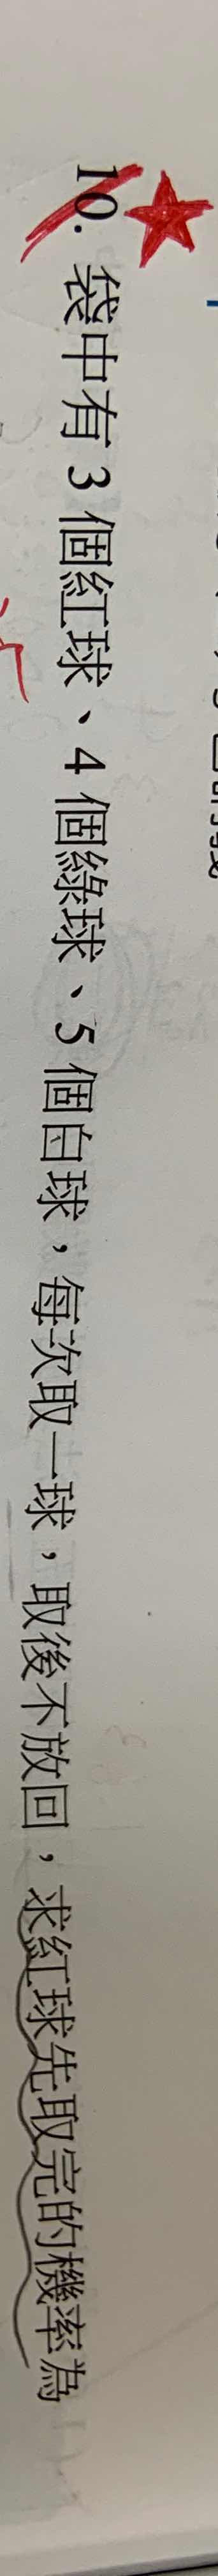 10. 袋中有 3 個紅球、4 個綠球、5 個白球，每次取一球，取後不放回，求紅球先取完的機率為